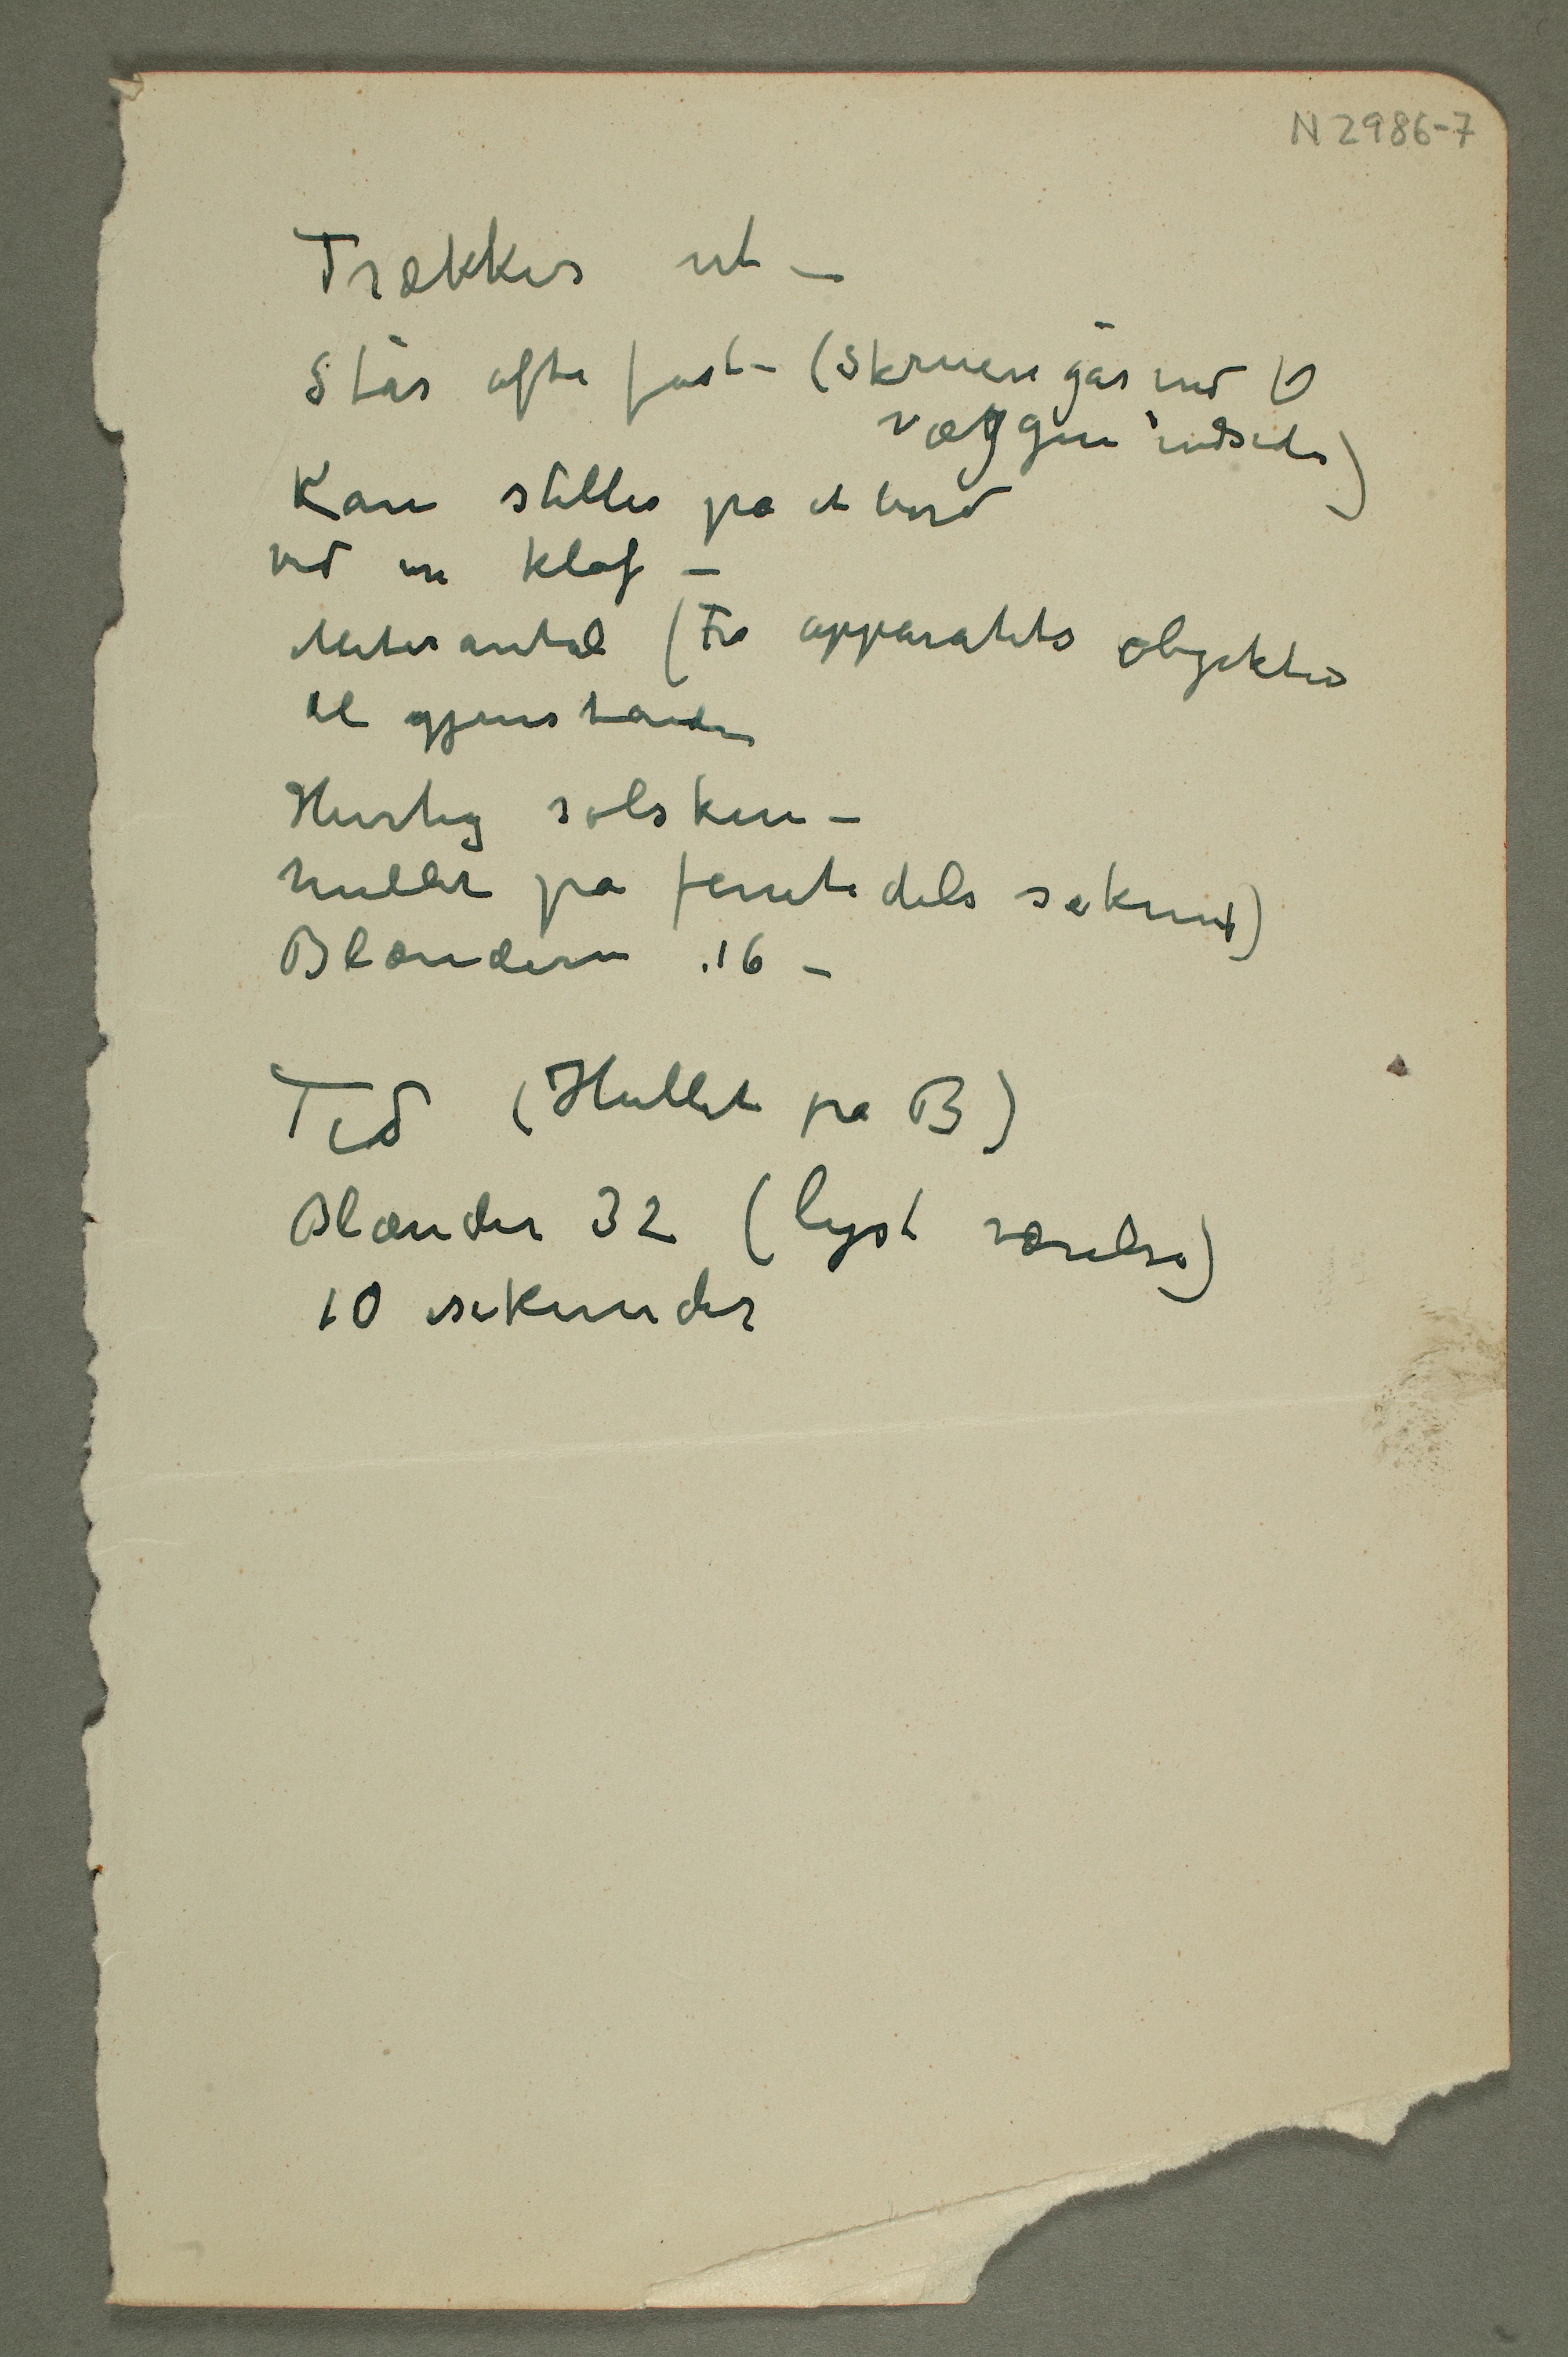 N 2986-7
Trækkes ut –
Står ofte fast – (Skruen går ind
væggen indside)
Kan stilles på et bord
ved en klaf –
Meterantal (Fra apparatets objektiv
til gjenstanden
Hurtig solskin –
hullet på femtedels sekund)
Blænderen 16 –
Tid (Hullet på B)
Blænder 32 (lyst værelse)
10 sekunder